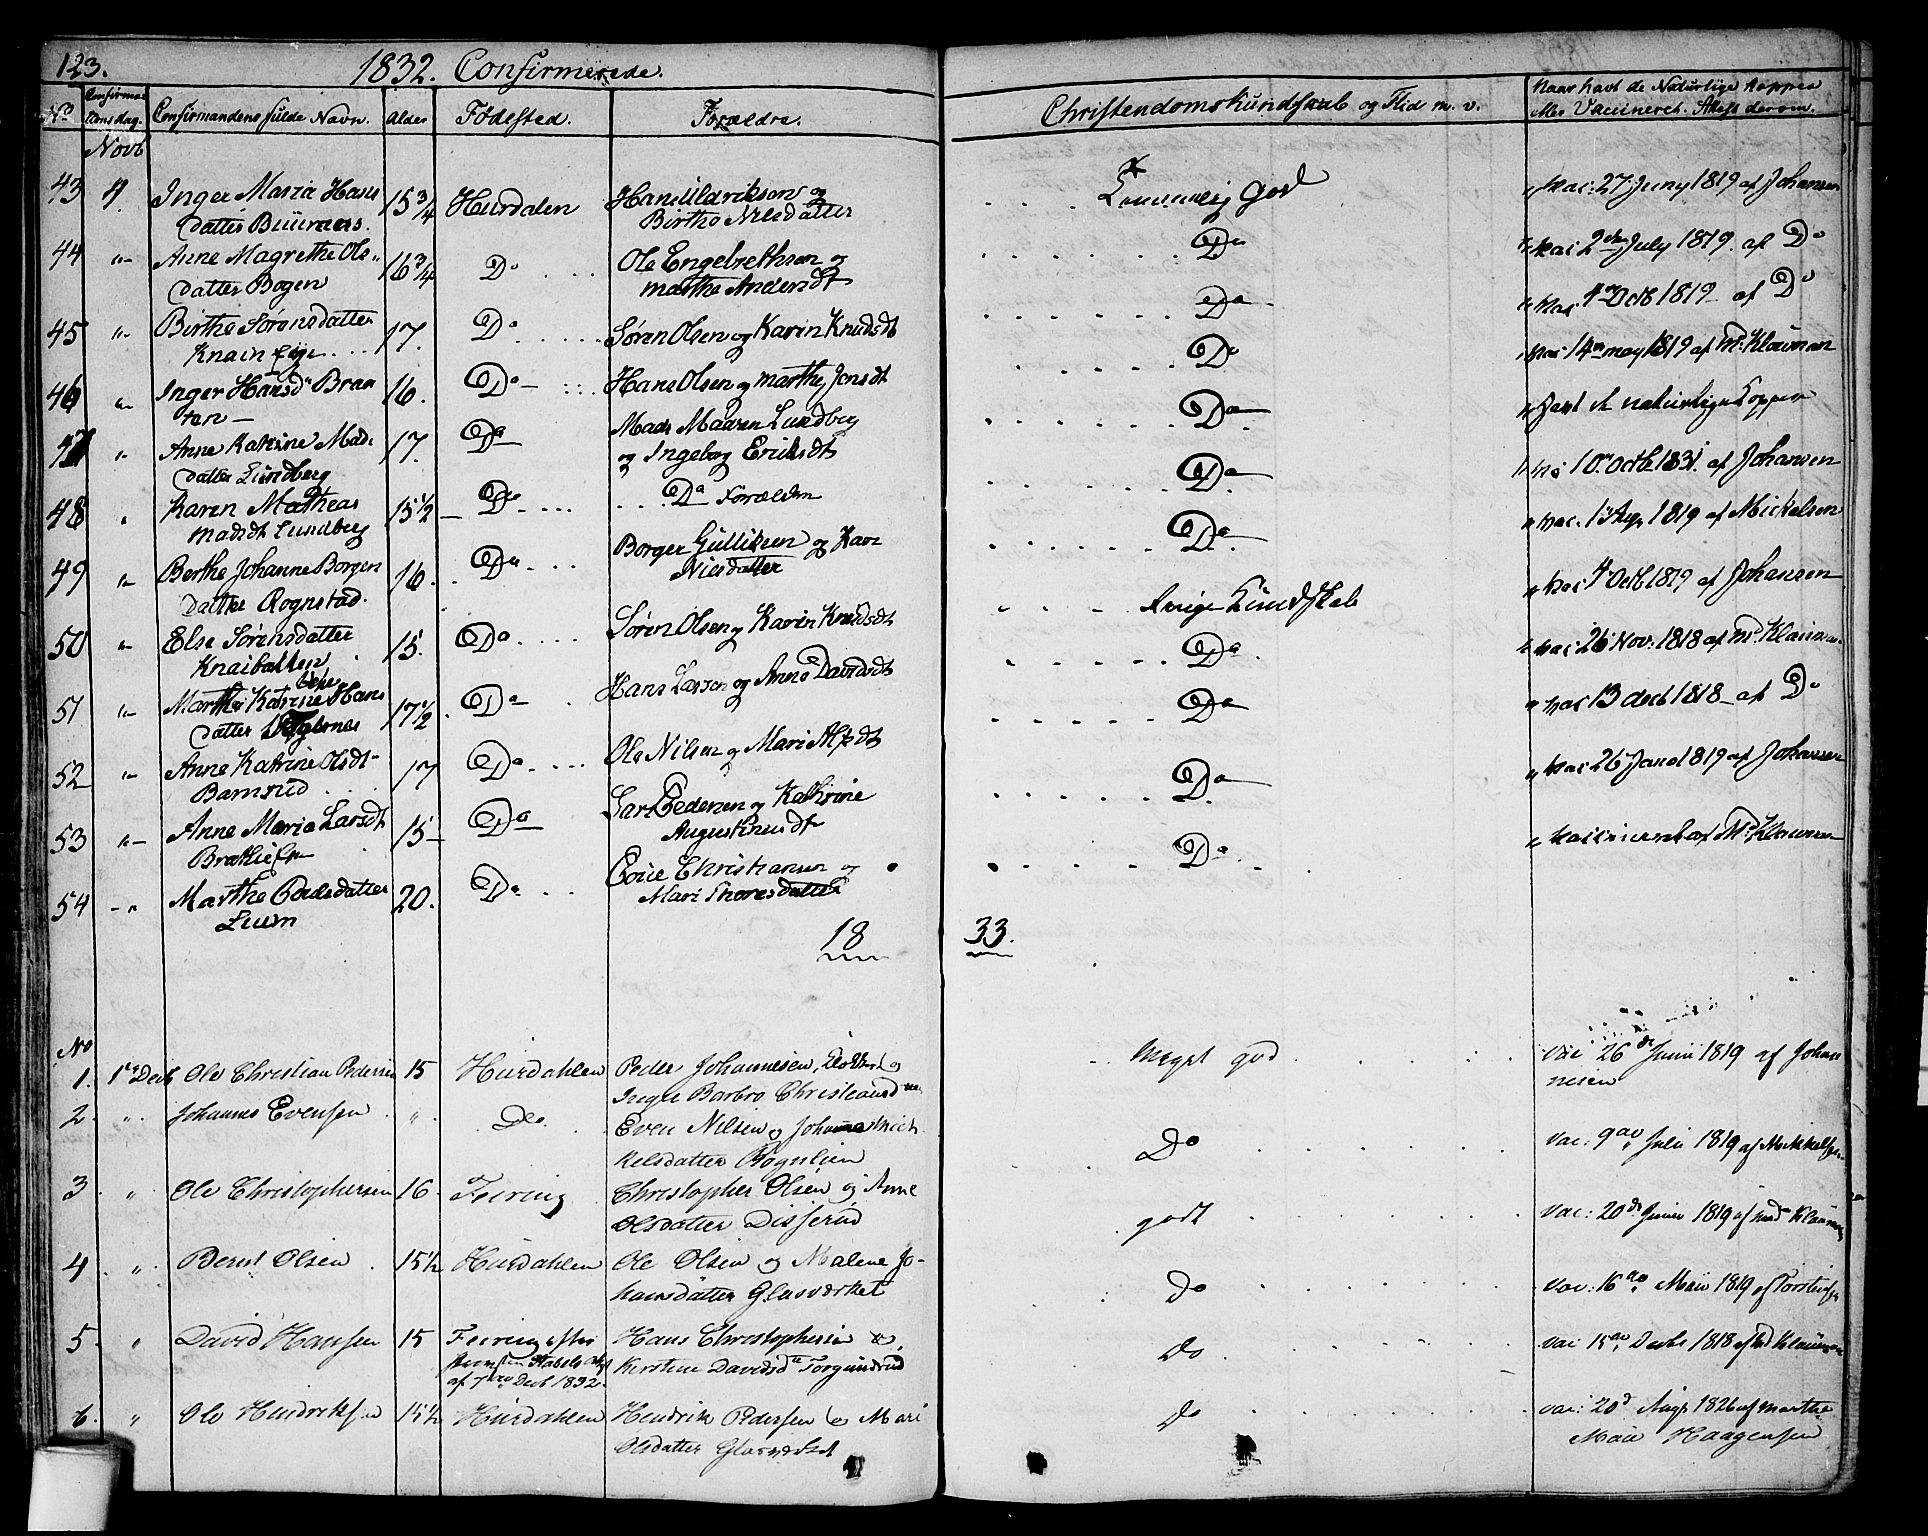 123.
1832. Confirmerede.
No Confirmations dag. Confirmandens fulde Navn. Alder Födested. Forældre. Christendomskundskab og Flid m. v. Naar havt de Naturlige Kopper
eller Vaccineret. Attest derom.
Novb
43 4. Inger Maria Hans 15 3/4 Hurdalen Hans Uldrikson og Temmelig god vac: 27 Juny 1819 af Johansen
datter
Birthe Nilsdatter
44 " Anne Magrethe Ols 16 3/4 Do Ole Engebrethsen og Do vac: 2den July 1819 af Do
datter Bogen
Marthe Andersdt
45 " Birthe Sörensdatter 17. Do Sören Olsen og Karin Knudsdt Do vac 4 Octb 1819 af Do
46 " Inger Hansd Braa 16. Do Hans Olsen og Marthe Jensdt Do vac: 14 may 1819 af Md Klouman
ten
47 " Anne Katrine Mads 17. Do Mads Madsen Lundberg Do havt de naturlige Kopper
datter Lundberg
og Ingeborg Eriksdt
48 " Karen Mathea 15 1/2 Do Do Forældre Do 10 Octb 1831. af Johansen
Madsdt Lundberg
49 " Berthe Johanne Borger 16. Do Borger Gulliksen og Kari Do vac: 1819 af Mickelsen
datter Rognstad.
Nilsdatter
50 " Else Sörensdatter 15. Do Sören Olsen og Karin Knudsdt Ringe Kundskab vac 4 Octb 1819 af Johansen
Knaibakken
51 " Marthe Katrine Hans 17 1/2 Do Hans Larsen og Anne Davidsdt Do vac: 26 Nov: 1818 af Md Klouman
datter
52 " Anne Katrine Olsdt 17 Do Ole Nilsen og Mari Do vac: 13 decb 1818 af Do
Bamrud
53 " Anne Maria Larsdt 15 Do Lars Pedersen og Kathrine Do vac: 26 Jan 1819 af Johansen
54 " Marthe 20. Do Christiansen og Do vaccineret af Md Klouman
Mari Thoresdatter
18
33.
No
1. 1 Decb Ole Christian Pedersen 15 Hurdahlen Peder Johannesen, og Meget god vac 26 Junii 1819 af Johan
nesen
Inger Barbro
2. " Johannes Evensen " Do Even Nilsen og Johanne Mich Do vac: 9 Julii 1819 af Mikkelsen
kelsdatter Rognlien
3. " Ole Christophersen 16 Feiring Christopher Olsen og Anne godt vac: 20 Junii 1819 af Md Klouman
Olsdatter Disserud
4 " Bernt Olsen 15 1/2 Hurdahlen Ole Olsen og Malene Jo- Do vac: 16 Maii 1819 af Torstensen
hansdatter Glasværket
5. " David Hansen 15 Feiring efter Hans Christophersen og do vac: 15 Decbr 1818 af Md Klouman
Stabels Attest
af 7 Decb 1832.
Kirstine Davidsd Torgunrud
6. " Ole Hendriksen 15 1/2 Hurdahlen Hendrik Pedersen og Mari do vac: 20 Aug 1826 af Marthe
Maria Haagensen
Olsdatter Glasværket